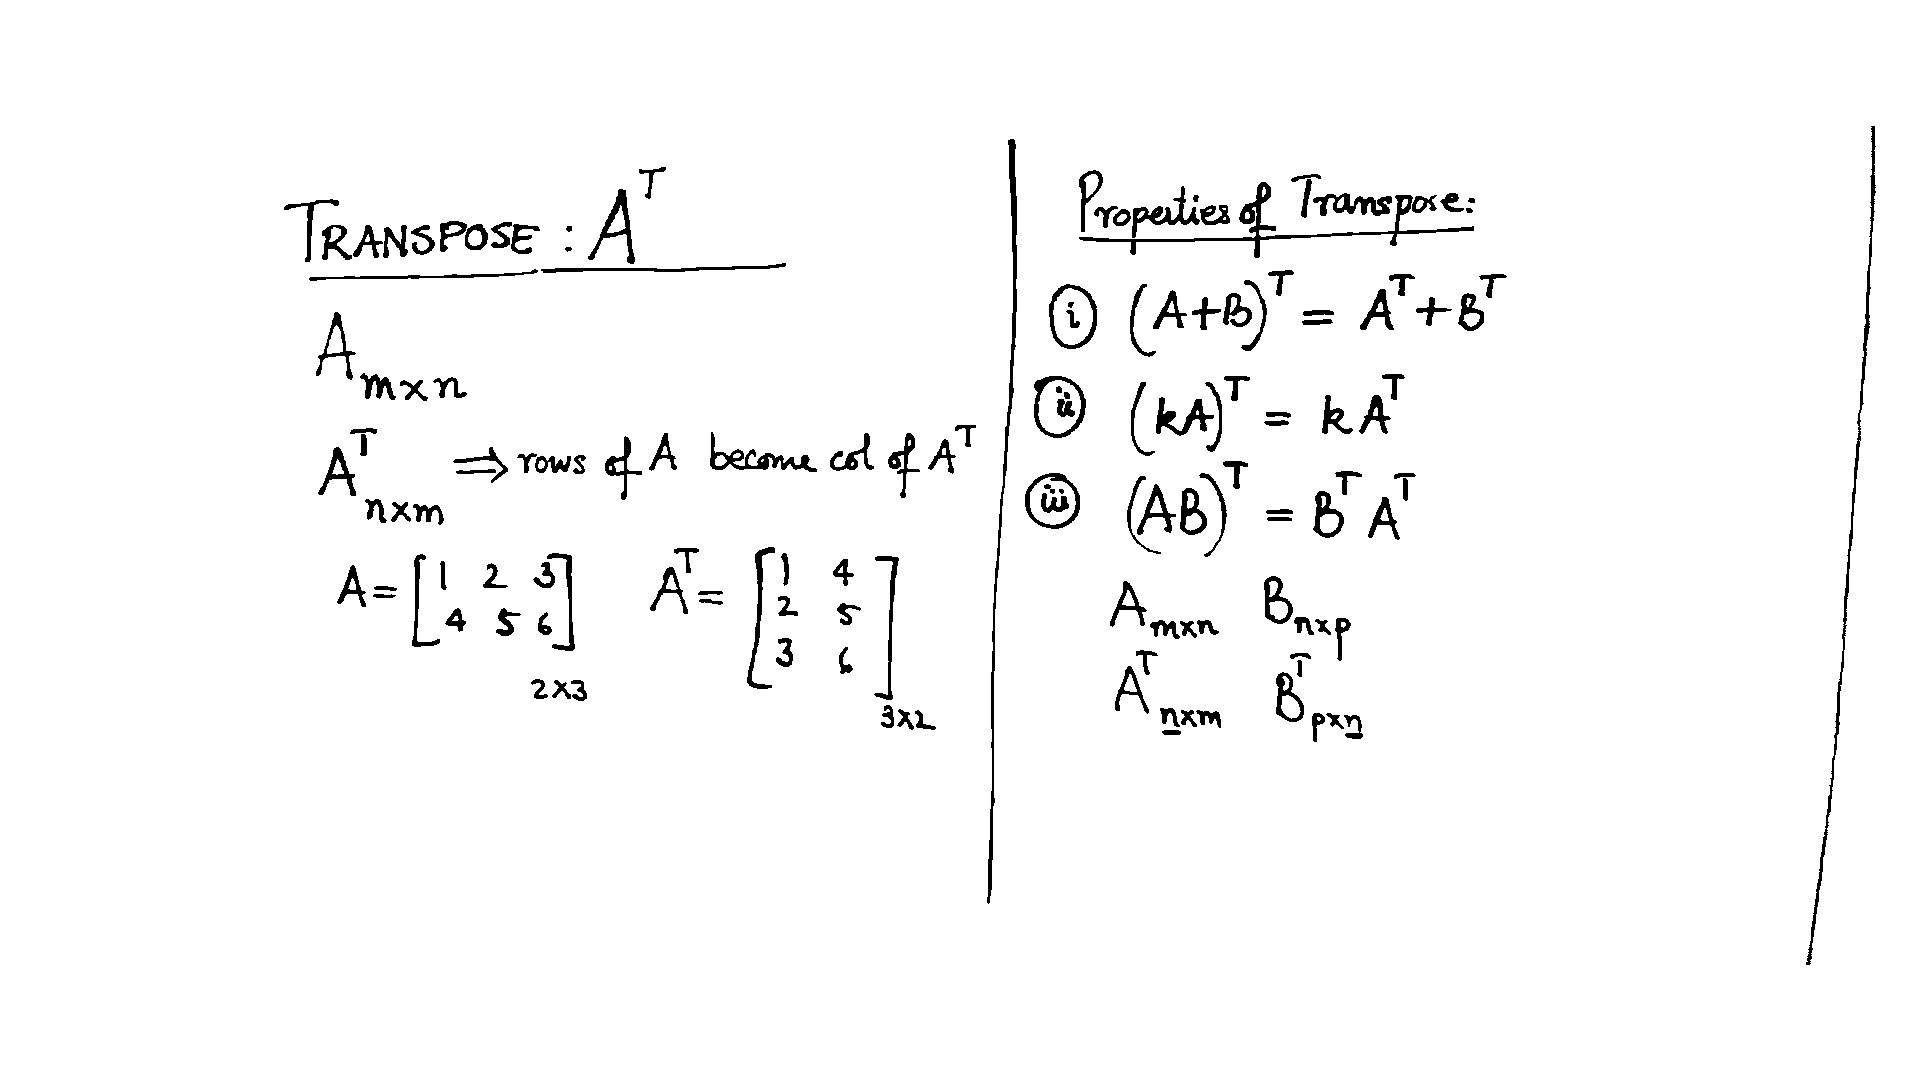 TRANSPOSE : A^T
A_{m×n}
A^T_{n×m} ⇒ rows of A become col of A^T
A = [1 2 3
4 5 6]_{2×3}
A^T = [1 4
2 5
3 6]_{3×2}
Properties of Transpose:
(i) (A+B)^T = A^T + B^T
(ii) (kA)^T = k A^T
(iii) (AB)^T = B^T A^T
A_{m×n} B_{n×p}
A^T_{n×m} B^T_{p×n}